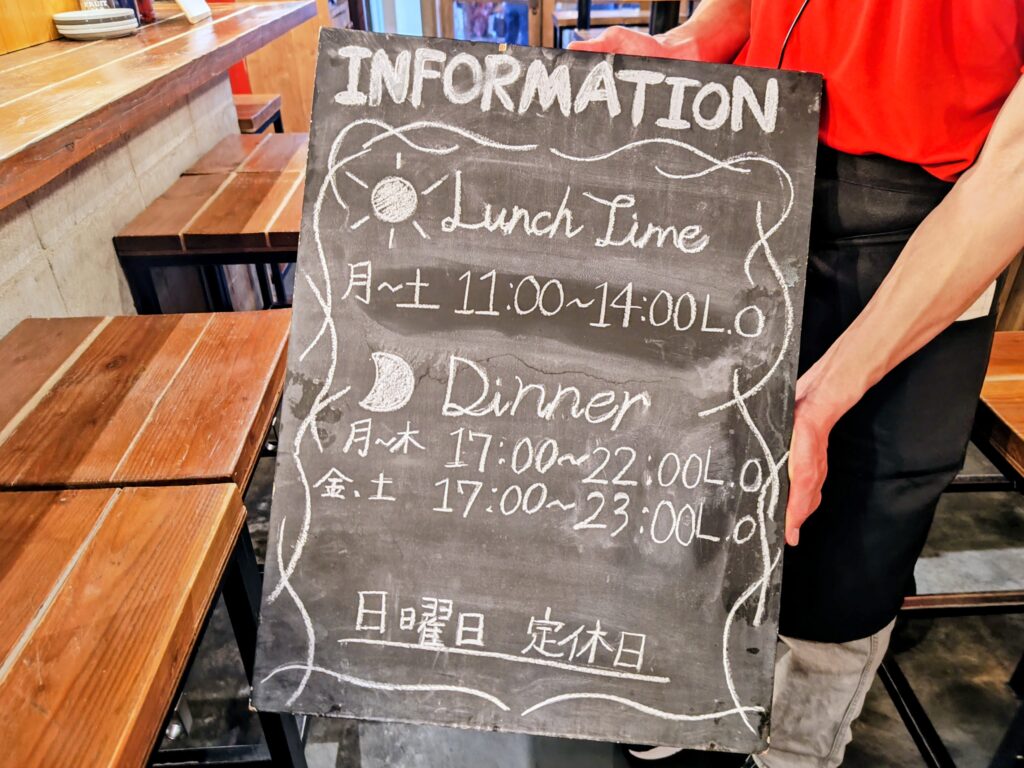 INFORMATION
Lunch Time
月~土 11:00~14:00L.O
Dinner
月~木 17:00~22:00L.O
金、土 17:00~23:00L.O
日曜日 定休日